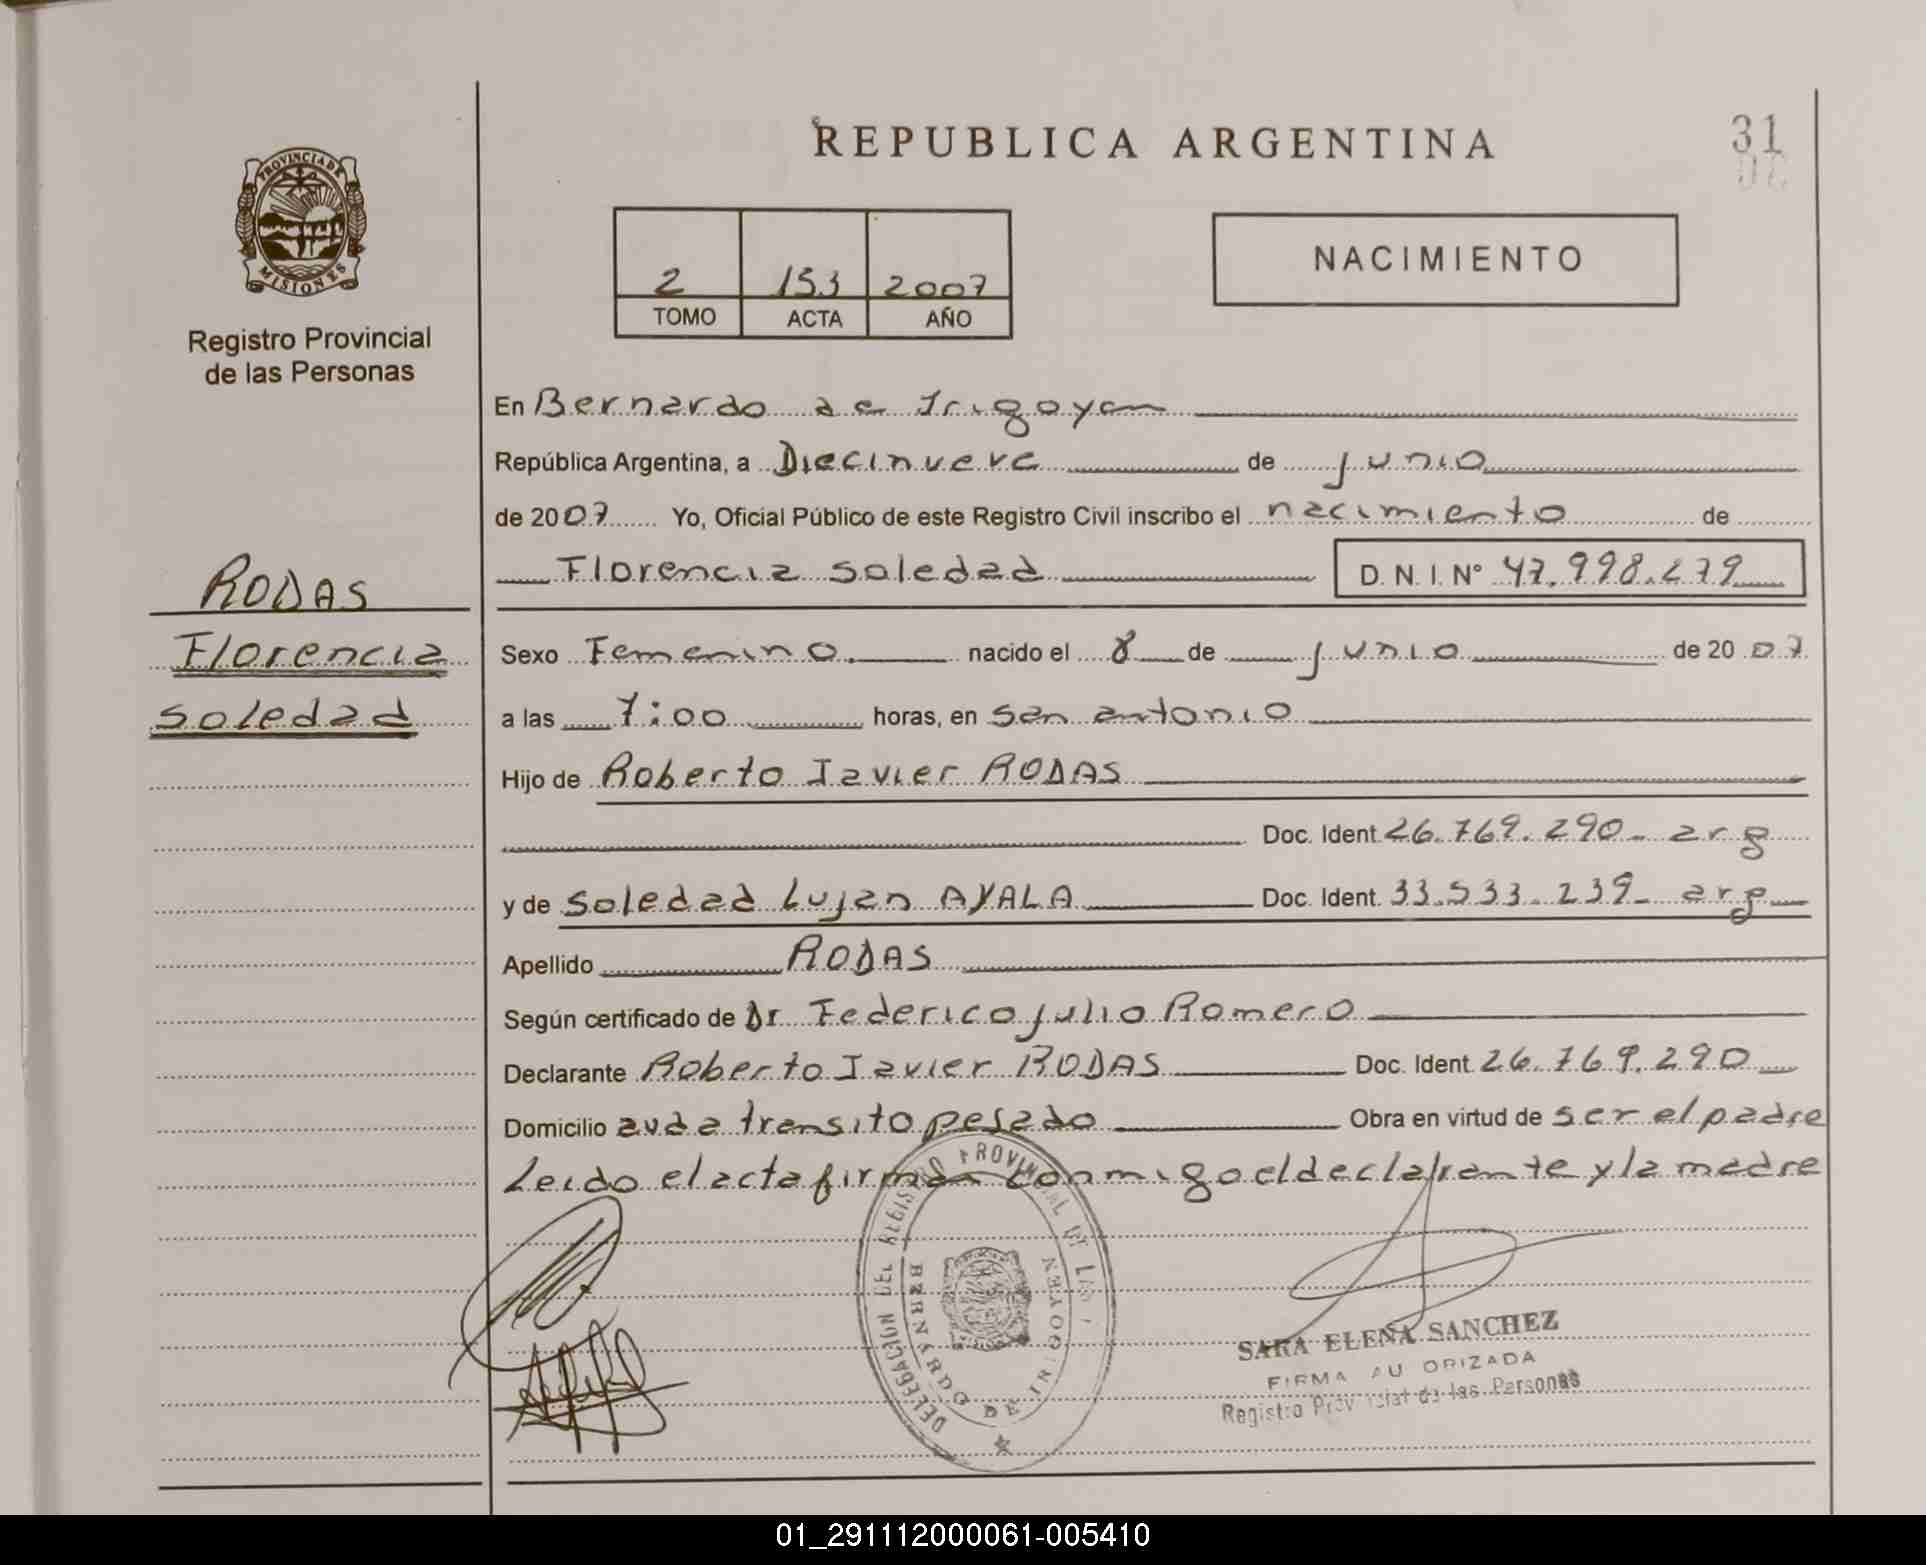 REPUBLICA ARGENTINA
31
PROVINCIA DE
MISIONES
Registro Provincial
de las Personas
2 153 2007
TOMO ACTA AÑO
NACIMIENTO
En Bernardo de Irigoyen
República Argentina, a Diecinueve de junio
de 2007 Yo, Oficial Público de este Registro Civil inscribo el nacimiento de
Florencia Soledad D. N. I. N° 47.998.279
RODAS
Florencia
Soledad
Sexo Femenino. nacido el 8 de junio de 2007
a las 7:00 horas, en San antonio
Hijo de Roberto Javier RODAS
Doc. Ident. 26.769.290- arg
y de Soledad Lujan AYALA Doc. Ident. 33.533.239- arg
Apellido RODAS
Según certificado de Dr Federico Julio Romero
Declarante Roberto Javier RODAS Doc. Ident. 26.769.290
Domicilio avda transito pesado Obra en virtud de ser el padre
Leido el acta firman conmigo el declarante y la madre
DELEGACIÓN DEL REGISTRO PROVINCIAL DE LAS
BERNARDO DE IRIGOYEN
SARA ELENA SANCHEZ
FIRMA AUTORIZADA
Registro Provincial de las Personas
01_291112000061-005410